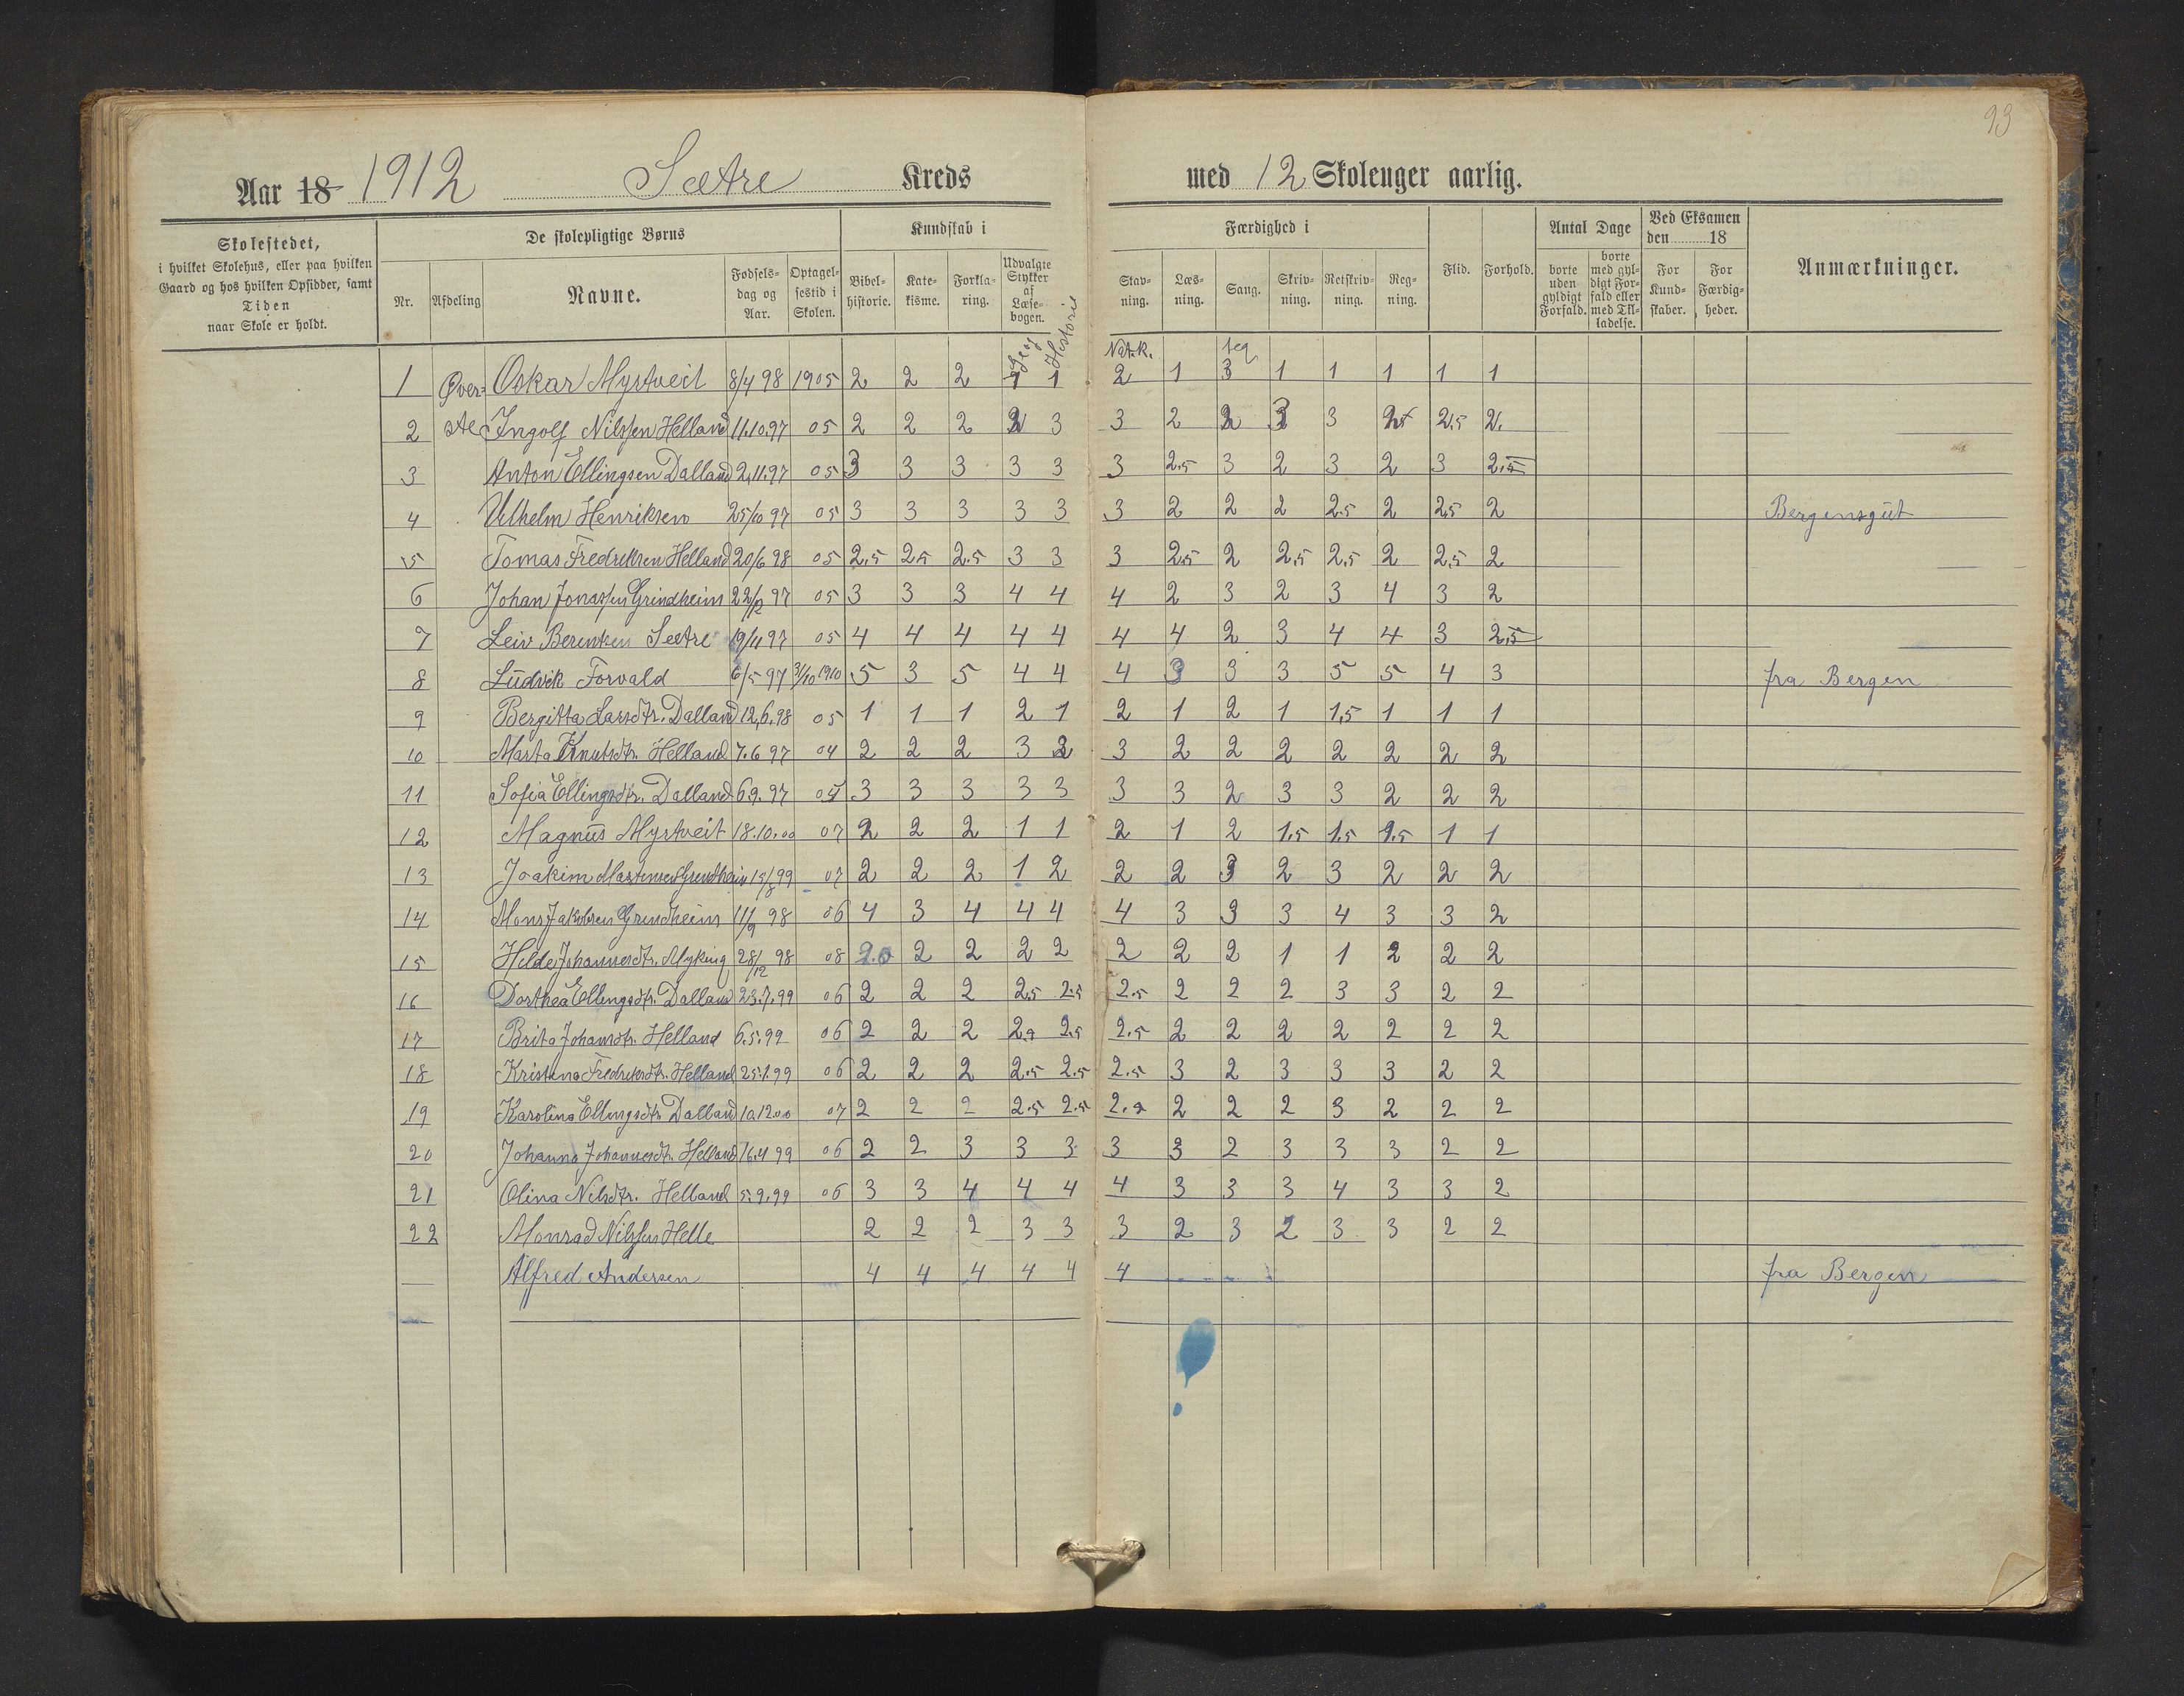 93
Aar 18 1912 Sætre Kreds med 12 Skoleuger aarlig.
Skolestedet, i hvilket Skolehus, eller paa hvilken Gaard og hos hvilken Opsidder, samt Tiden naar Skole er holdt.
De skolepligtige Børns
Kundskab i
Færdighed i
Antal Dage
Ved Eksamen den 18
Nr. Afdeling Navne. Fødselsdag og Aar. Optagelsestid i Skolen. Bibelhistorie. Katekisme. Forklaring. Udvalgte Stykker af Læsebogen. Stavning. Læsning. Sang. Skrivning. Retskrivning. Regning. Flid. Forhold. borte uden gyldigt Forfald. borte med gyldigt Forfald eller med Tilladelse. For Kundskaber. For Færdigheder. Anmærkninger.
Geog Historie Nat.k. teg
1 Øver- Oskar Myrtveit 8/4 98 1905 2 2 2 1 1 2 1 3 1 1 1 1 1
2 ste Ingolf Nilssen Helland 11.10.97 05 2 2 2 2 3 3 2 2 3 3 2,5 2,5 2.
3 Anton Ellingsen Dalland 2,11.97 05 3 3 3 3 3 3 2.5 3 2 3 2 3 2,5
4 Vilhelm Henriksen 25/10 97 05 3 3 3 3 3 3 2 2 2 2.5 2 2,5 2 Bergensgut
5 Tomas Fredriksen Helland 20/6 98 05 2,5 2,5 2.5 3 3 3 2,5 2 2,5 2,5 2 2,5 2
6 Johan Jonassen Grindheim 22/12 97 05 3 3 3 4 4 4 2 3 2 3 4 3 2
7 Leiv Berentsen Sætre 19/11 97 05 4 4 4 4 4 4 4 2 3 4 4 3 2,5
8 Ludvik Torvald 6/5 97 3/10 1910 5 3 5 4 4 4 3 3 3 5 5 4 3 fra Bergen
9 Bergitta Larsdtr. Dalland 12,6,98 05 1 1 1 2 1 2 1 2 1 1,5 1 1 1
10 Marta Knutsdtr. Helland 7.6 97 04 2 2 2 3 3 3 2 2 2 2 2 2 2
11 Sofia Ellingsdtr. Dalland 6.9.97 04 3 3 3 3 3 3 3 2 3 3 2 2 2
12 Magnus Myrtveit 18.10.00 07 2 2 2 1 1 2 1 2 1.5 1.5 1.5 1 1
13 Joakim Martinsen Grindheim 19/8 99 07 2 2 2 1 2 2 2 3 2 3 2 2 2
14 Mons Jakobsen Grindheim 11/9 98 06 4 3 4 4 4 4 3 3 3 4 3 3 2
15 Helde Johannesdtr. Myking 28/12 98 08 2.0 2 2 2 2 2 2 2 1 1 2 2 2
16 Dorthea Ellingsdtr. Dalland 23.7.99 06 2 2 2 2.5 2.5 2.5 2 2 2 3 3 2 2
17 Brita Johansdtr. Helland 6.5.99 06 2 2 2 2.5 2.5 2.5 2 2 2 2 2 2 2
18 Kristina Fredriksdtr. Helland 25.1.99 06 2 2 2 2.5 2.5 2.5 3 2 3 3 3 2 2
19 Karolina Ellingsdtr. Dalland 10.12.00 07 2 2 2 2.5 2.5 2.5 2 2 2 3 2 2 2
20 Johanna Johannesdtr. Helland 16.4 99 06 2 2 3 3 3 3 3 2 3 3 3 2 2
21 Olina Nilsdtr. Helland 5.9.99 06 3 3 4 4 4 4 3 3 3 4 3 3 2
22 Monrad Nilssen Helle 2 2 2 3 3 3 2 3 2 3 3 2 2
Alfred Andersen 4 4 4 4 4 4 fra Bergen